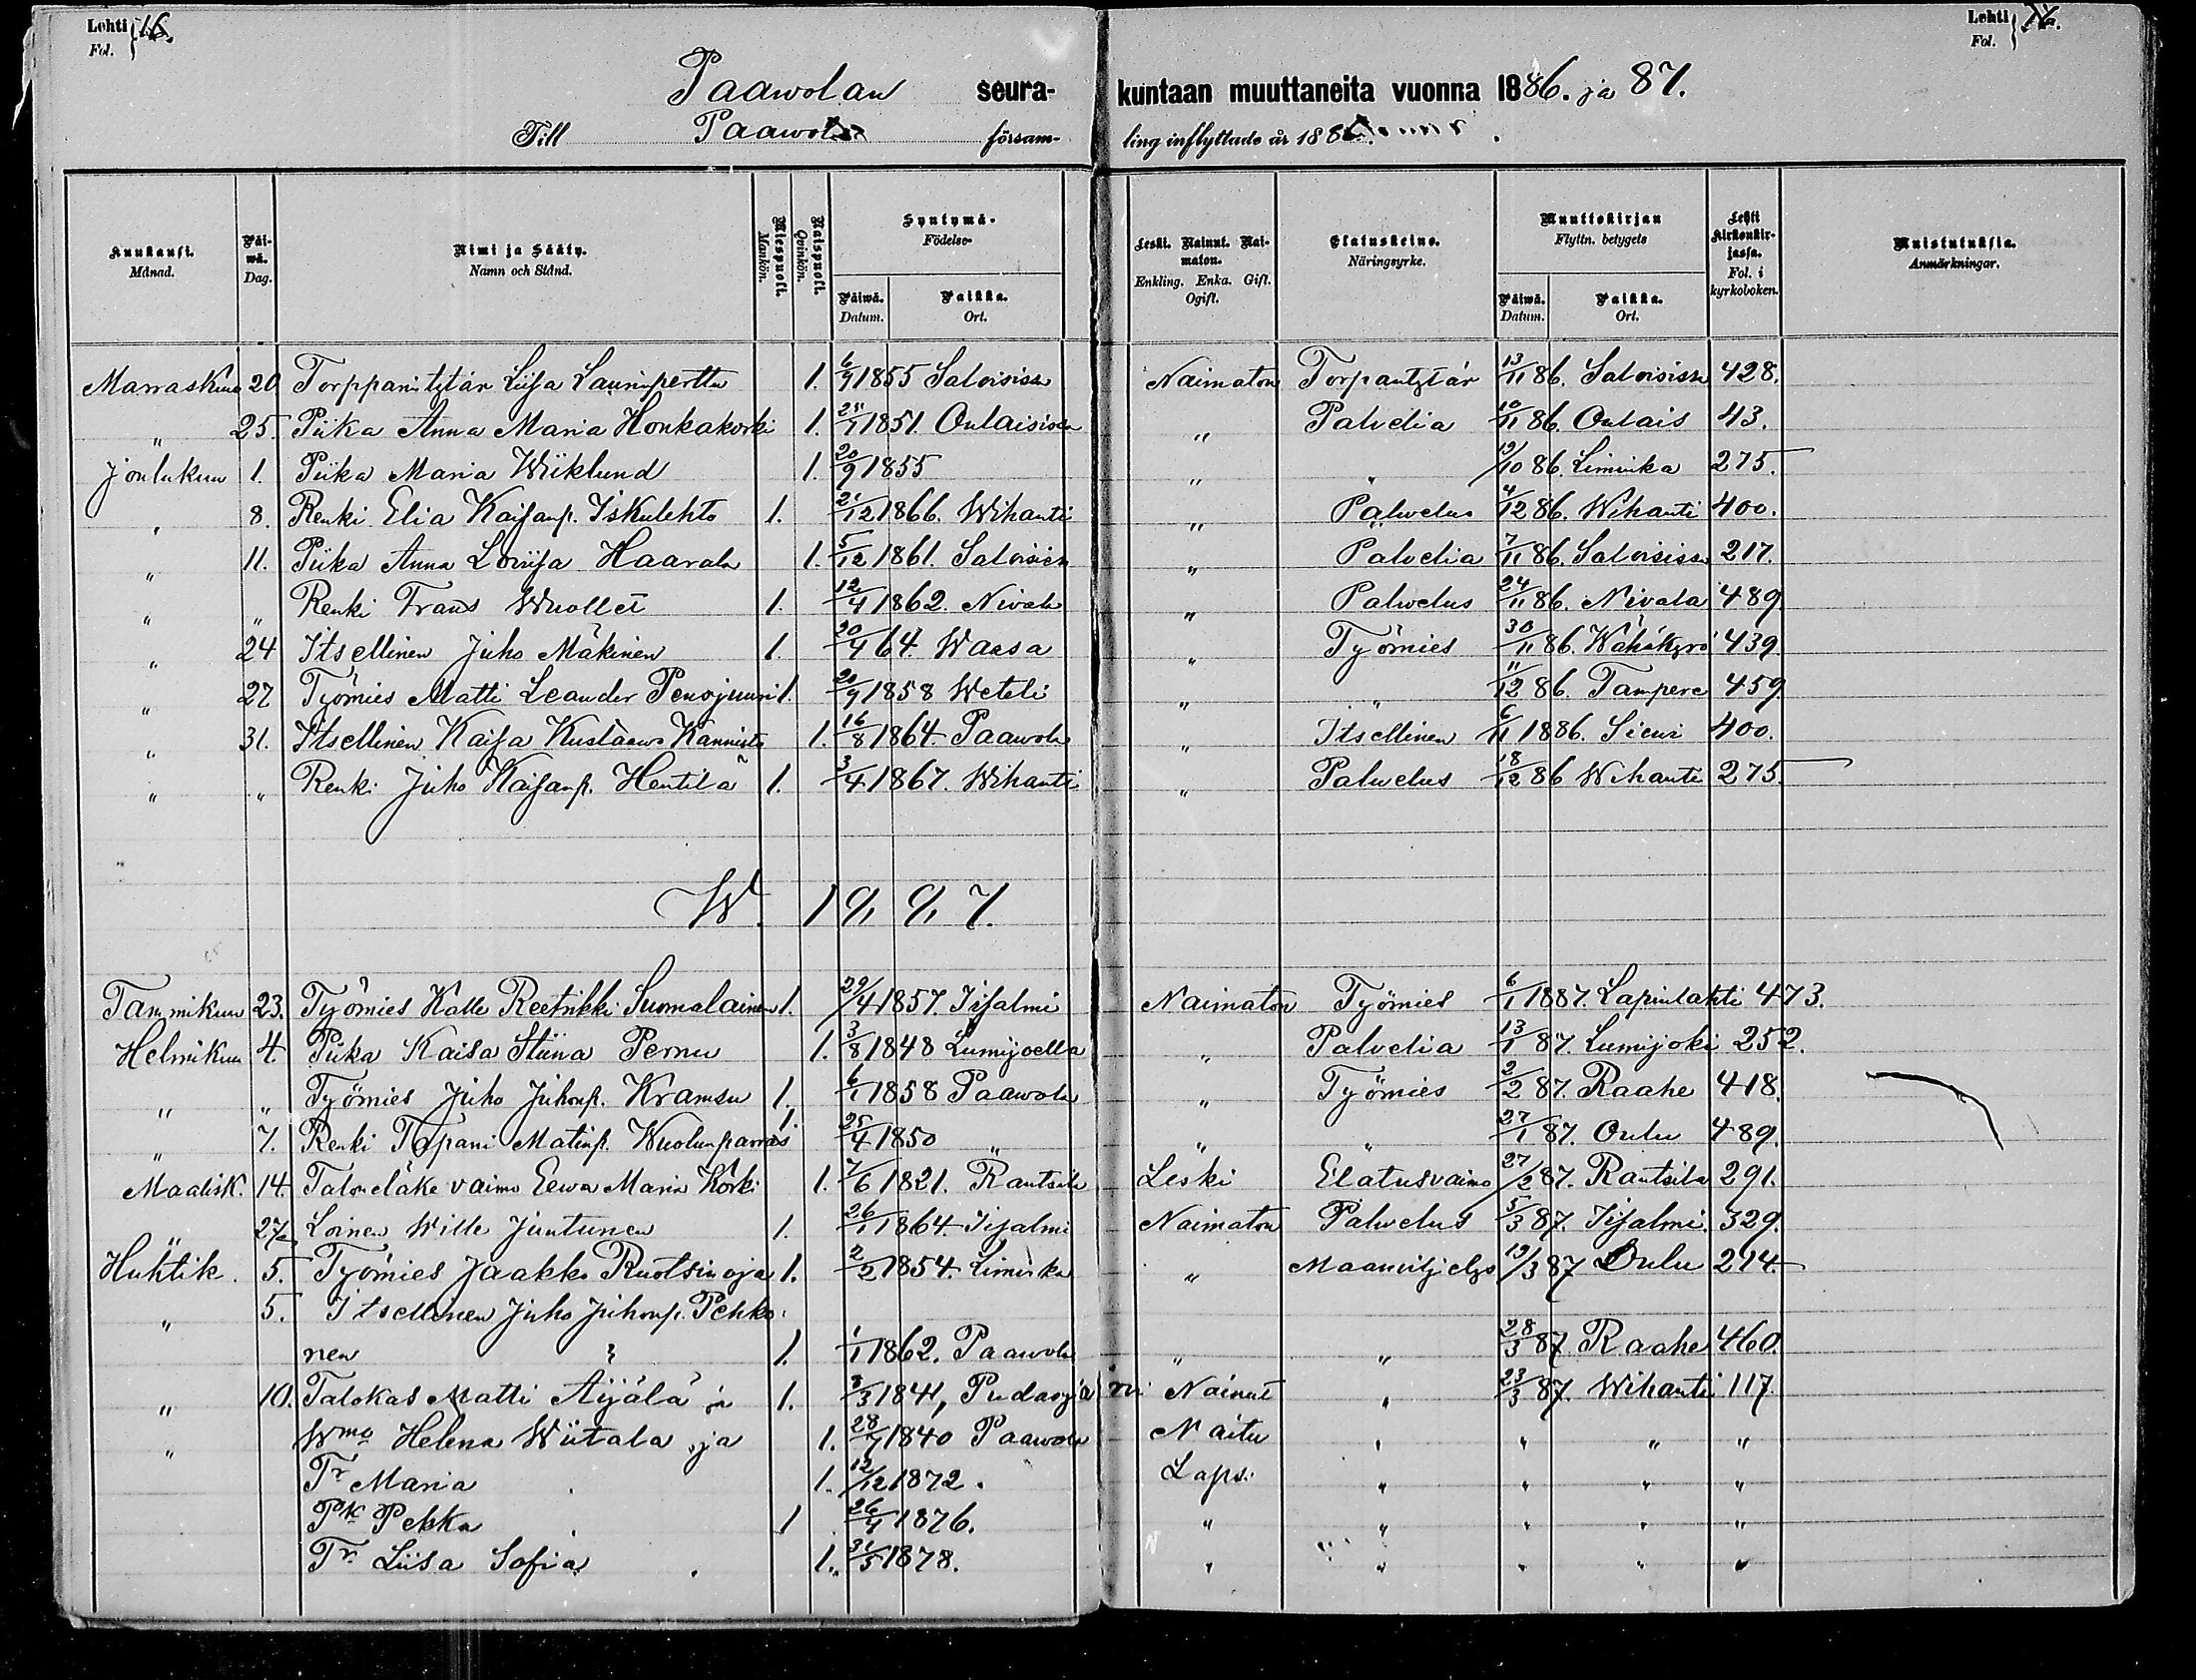 Lehti Fol. } 16.
Lehti Fol. } 16.
Paawolan seurakuntaan muuttaneita vuonna 1886. ja 87.
Till Paawola församling inflyttade år 188
Kuukausi. Månad. | Päiwä. Dag. | Nimi ja Sääty. Namn och Stånd. | Miespuoli. Mankön. | Naispuoli. Qvinkön. | Syntymä- Födelse- Päiwä. Datum. | Paikka. Ort. | Leski. Nainut. Naimaton. Enkling. Enka. Gift. Ogift. | Elatuskeino. Näringsyrke. | Muuttokirjan Flyttn. betygets Päiwä. Datum. | Paikka. Ort. | Lehti Kirkonkirjassa. Fol. i kyrkoboken. | Muistutuksia. Anmärkningar.
Marraskuu 20 Torppanitytär Liisa Lauriinpertta 1. 6/9 1855 Saloisissa Naimaton Torpantytär 13/11 86. Saloisissa 428.
" 25. Piika Anna Maria Honkakoski 1. 1851. Oulaisissa " Palvelia 10/11 86. Oulais 43.
Joulukuu 1. Piika Maria Wiiklund 1. 20/9 1855 " " 19/10 86. Liminka 275.
" 8. Renki Elia Kaisanp. Iskulehto 1. 21/12 1866. Wihanti " Palwelus 4/12 86. Wihanti 400.
" 11. Piika Anna Loviisa Haarala 1. 5/12 1861. Saloisissa " Palvelia 7/11 86. Saloisissa 217.
" " Renki Frans Wuollet 1. 12/4 1862. Nivala " Palwelus 24/11 86. Nivala 489.
" 24 Itsellinen Juho Mäkinen 1. 20/4 64. Waasa " Työmies 30/11 86. Wähäkyrö 439.
" 27 Työmies Matti Leander Penojuuri 1. 20/9 1858 Weteli " " 11/12 86. Tampere 459.
" 31. Itsellinen Kaisa Kustaawa Kannisto 1. 16/8 1864. Paawola " Itsellinen 6/11 1886. Sievi 400.
" " Renki Juho Kaisanp. Hentilä 1. 3/4 1867. Wihanti " Palwelus 18/12 86 Wihanti 275.
W. 1887.
Tammikuu 23. Työmies Kalle Reetrikki Suomalainen 1. 29/4 1857. Iisalmi Naimaton Työmies 6/1 1887. Lapinlahti 473.
Helmikuu 4. Piika Kaisa Stiina Pernu 1. 3/8 1848 Lumijoella " Palvelia 13/1 87. Lumijoki 252.
" " Työmies Juho Juhonp. Kramsu 1. 6/1 1858 Paawola " Työmies 2/2 87. Raahe 418.
" 7. Renki Tapani Matinp. Wuolunparras 1. 25/4 1850 " " " 27/1 87. Oulu 489.
Maalisk. 14. Talon eläke vaimo Eewa Maria Korki 1. 7/6 1821. Rantsila Leski Elatusvaimo 27/2 87. Rantsila 291.
" 27 Loinen Wille Juntunen 1. 26/1 1864. Iisalmi Naimaton Palwelus 5/3 87. Iisalmi. 329.
Huhtik. 5. Työmies Jaakko Ruotsinoja 1. 2/2 1854. Liminka " Maanviljelys 19/3 87 Oulu 214.
" 5. Itsellinen Juho Juhonp. Pehko-
nen 1. 1/1 1862. Paawola " " 28/3 87. Raahe 460.
" 10. Talokas Matti Äijälä ja 1. 3/3 1841, Pudasjärvi Nainut " 23/3 87. Wihanti 117.
" Wmo Helena Wiitala ja 1. 28/7 1840 Paawola Naitu " " " "
Tr Maria 1. 12/12 1872. Lapsi " " " "
Pk Pekka 1 26/4 1876. " " " " "
Tr Liisa Sofia 1. 31/5 1878. " " " " "